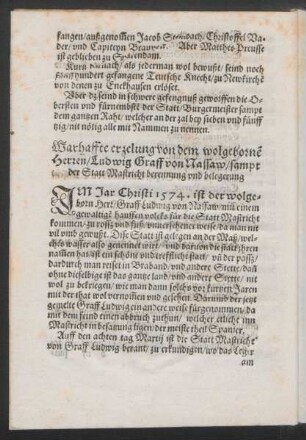 fangen/ außgenom̃en Jacob Steinbach/ Christoffel Va-
der/ vnd Capiteyn Beauvoit. Aber Mattheo Preusse
ist geblieben zu Sparendam.
Kurtz hernach/ als jederman wol bewußt/ seind noch
fünffhundert gefangene Teutsche Knecht/ zu Newkirchẽ
von denen zu Enckhausen erlöset.
Aber dz seind in schwere gefengnuß geworffen die O-
bersten vnd fürnembste der Statt/ Burgermeister sampt
dem gantzen Raht/ welcher an der zal bey sieben vnd fünff
tzig/ nit nötig alle mit Nammen zu nennen.
Warhaffte erzelung von dem wolgebornẽ
Herren/ Ludwig Graff von Nassaw/ sampt
der Statt Mastricht berennung vnd belegerung
IM Jar Christi 1574. ist der wolge-
born Herr/ Graff Ludwig von Nassaw/ mit einem
gewaltigẽ hauffen volcks für die Statt Mastricht
kommen/ zu roß vnd fuß/ vnuersehener weise/ da man nit
vil vmb gewußt. Diese Statt ist gelegen an der Maß/ wel-
ches wasser also genennet wirt/ vnd
diesen hauß ist ein schöne vnd trefflich statt/ vñ der passz/
dardurch man reiset in Braband/ vnd andere Stette/ dañ
ohne diselbige ist das gantz land/ vnd andere Stette/ nit
wol zu bekriegen/ wie man dann solchs vor kurtzen Jaren
mit der that wol vernom̃en vnd gesehen. Darumb der jetzt
gemelte Graff Ludwig ein andere weise fürgenommen/ da
mit dem feind einen abbruch zuthun/ welcher etliche inn
Mastricht in besatzung ligen/ der meiste theil Spanier.
Auff den achten tag Martij ist die Statt Mastricht
von Graff Ludwig berant/ zu erkundigen/ wo das Leger
am